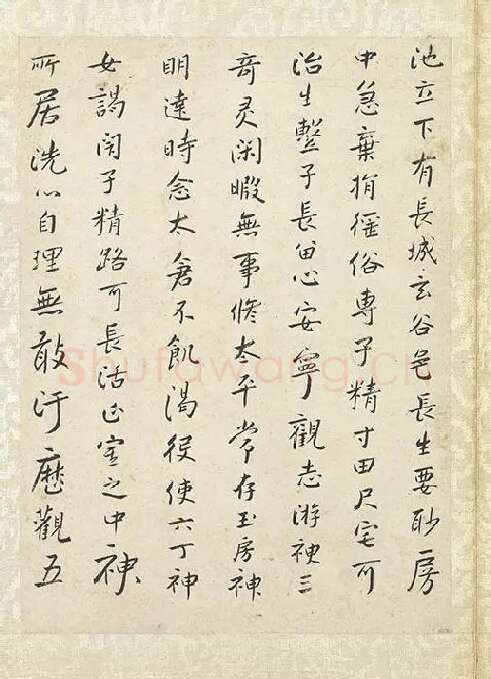 池立下有長城玄谷邑長生要眇房
中急棄捐徭俗專子精寸田尺宅可
治生繫子長畄心安寧觀志游神三
奇灵閑暇無事修太平常存玉房神
明達時念太倉不飢渴役使六丁神
女謁閉子精路可長活正室之中神
所居洗心自理無敢汙歷觀五
Shufawang.cn